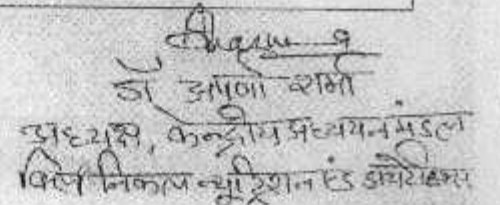 डॉ अपर्णा शर्मा
अध्यक्ष, केन्द्रीय अध्ययन मंडल
निकाय न्यूट्रिशन एंड डायटेटिक्स